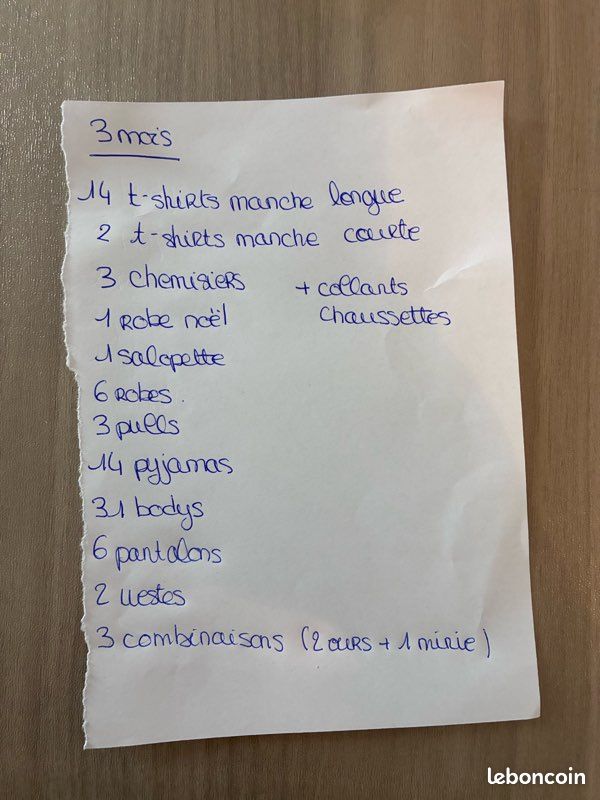 3 mois
14 t-shirts manche longue
2 t-shirts manche courte
3 chemisiers
+ collants
1 robe noël
chaussettes
1 salopette
6 robes.
3 pulls
14 pyjamas
31 bodys
6 pantalons
2 vestes
3 combinaisons (2 ours + 1 minie)
leboncoin